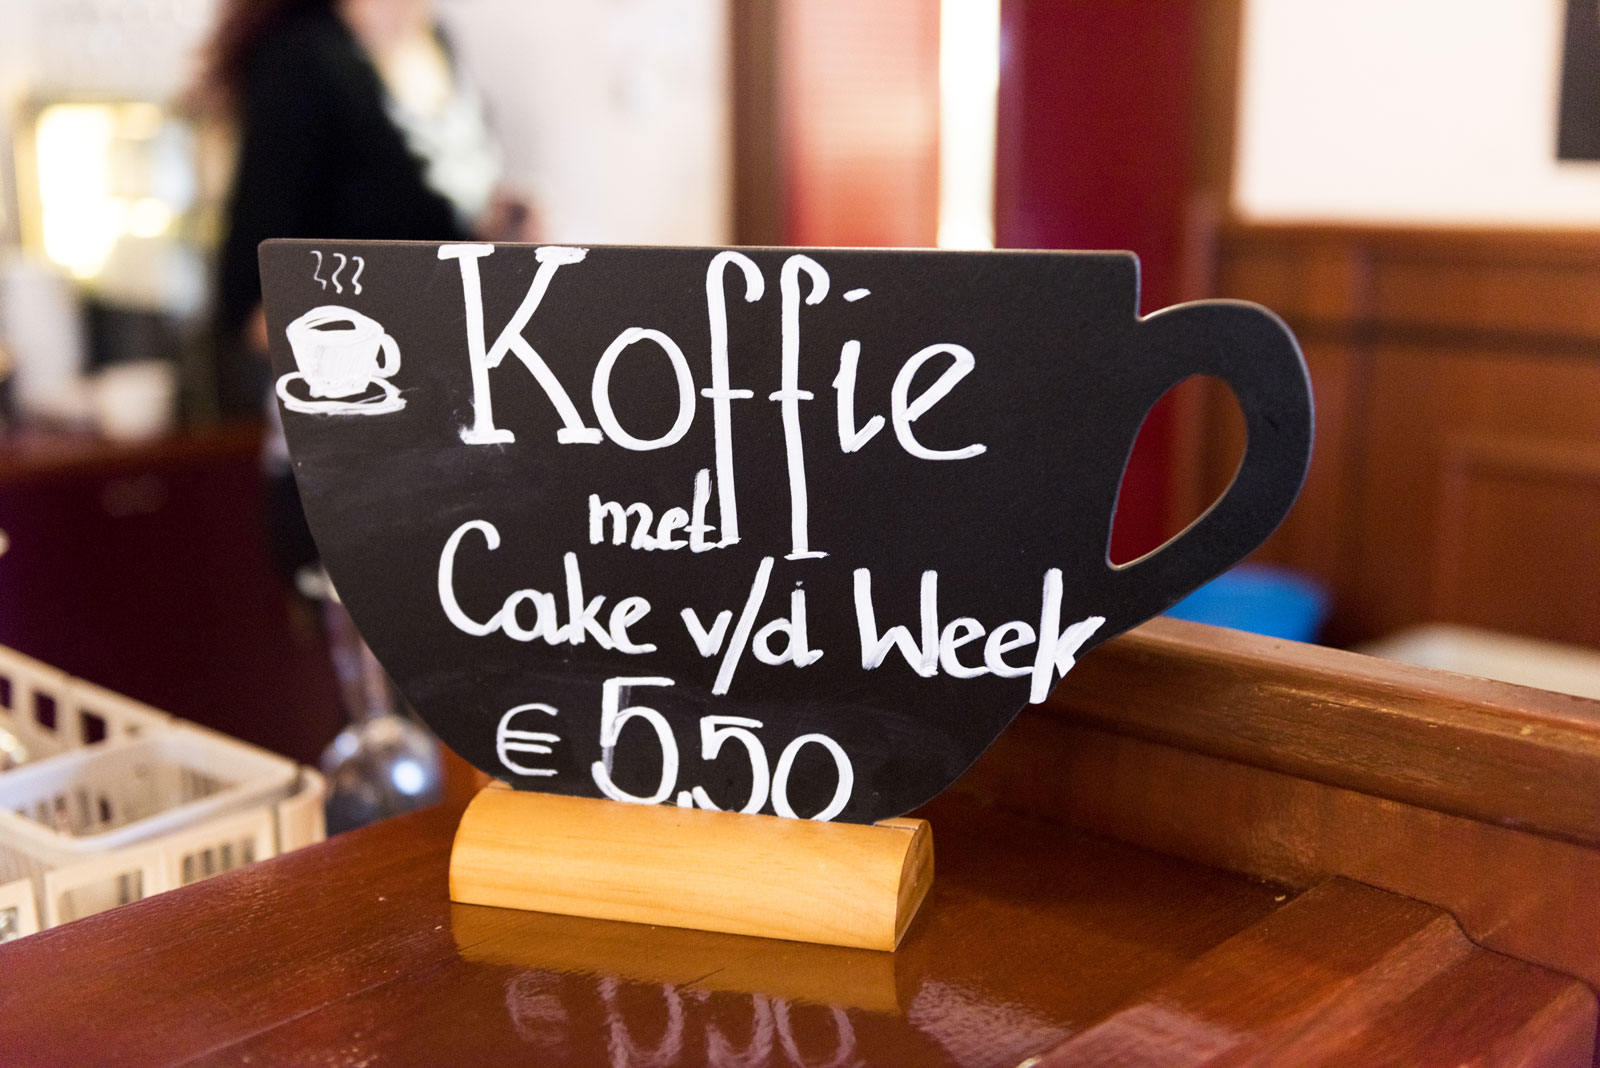 Koffie
met
Cake v/d Week
€ 5,50